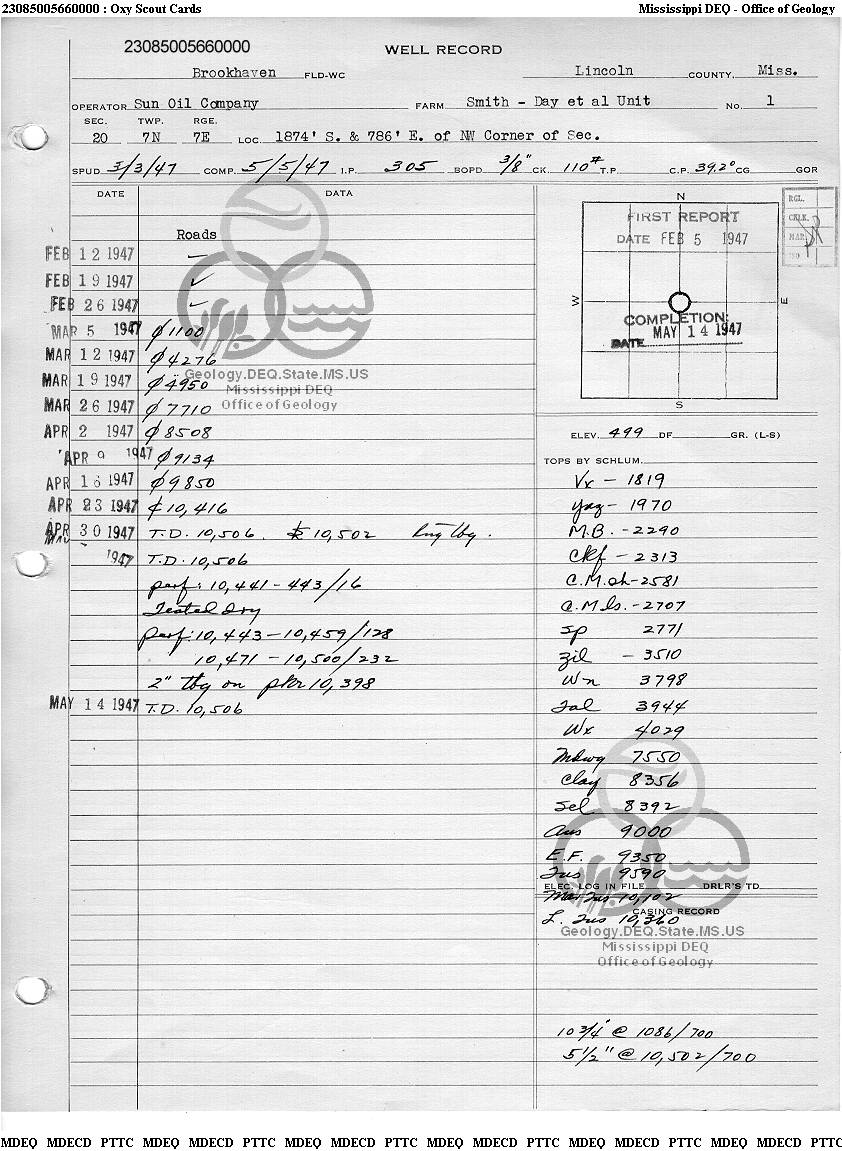 23085005660000 : Oxy Scout Cards Mississippi DEQ - Office of Geology
23085005660000
WELL RECORD
Brookhaven FLD-WC Lincoln COUNTY, Miss.
OPERATOR Sun Oil Company FARM Smith - Day et al Unit No. 1
SEC. TWP. RGE.
20 7N 7E LOC 1874' S. & 786' E. of NW Corner of Sec.
SPUD 3/3/47 COMP. 5/5/47 I.P. 305 BOPD 3/8" CK. 110# T.P. C.P. 39.2° CG GOR
DATE DATA
Roads
FEB 12 1947 ✓
FEB 19 1947 ✓
FEB 26 1947 ✓
MAR 5 1947 ₵ 1100
MAR 12 1947 ₵ 4276
MAR 19 1947 ₵ 4950
MAR 26 1947 ₵ 7710
APR 2 1947 ₵ 8508
APR 9 1947 ₵ 9134
APR 16 1947 ₵ 9850
APR 23 1947 ₵ 10,416
APR 30 1947 T.D. 10,506. 10,502 tbg.
MAY 1947 T.D. 10,506
perf: 10,441-443/16
Tested dry
perf: 10,443-10,459/128
10,471-10,500/232
2" tbg on pkr 10,398
MAY 14 1947 T.D. 10,506
Geology.DEQ.State.MS.US
Mississippi DEQ
Office of Geology
N
FIRST REPORT
DATE FEB 5 1947
W E
COMPLETION:
DATE MAY 14 1947
S
RGL.
CKLK.
MAR.
ELEV. 499 DF GR. (L-S)
TOPS BY SCHLUM.
Vx - 1819
Yaz - 1970
M.B. - 2290
Ckf - 2313
C.M.sh - 2581
C.M.ls. - 2707
Sp 2771
Zil - 3510
Wn 3798
Tal 3944
Wx 4029
Mdwy 7550
Clay 8356
Sel 8392
Aus 9000
E.F. 9350
Tus 9590
ELEC. LOG IN FILE DRLR'S TD
Mar Tus 10,102
CASING RECORD
L. Tus 10,360
Geology.DEQ.State.MS.US
Mississippi DEQ
Office of Geology
10 3/4" @ 1086/700
5 1/2" @ 10,502/700
MDEQ MDECD PTTC MDEQ MDECD PTTC MDEQ MDECD PTTC MDEQ MDECD PTTC MDEQ MDECD PTTC MDEQ MDECD PTTC